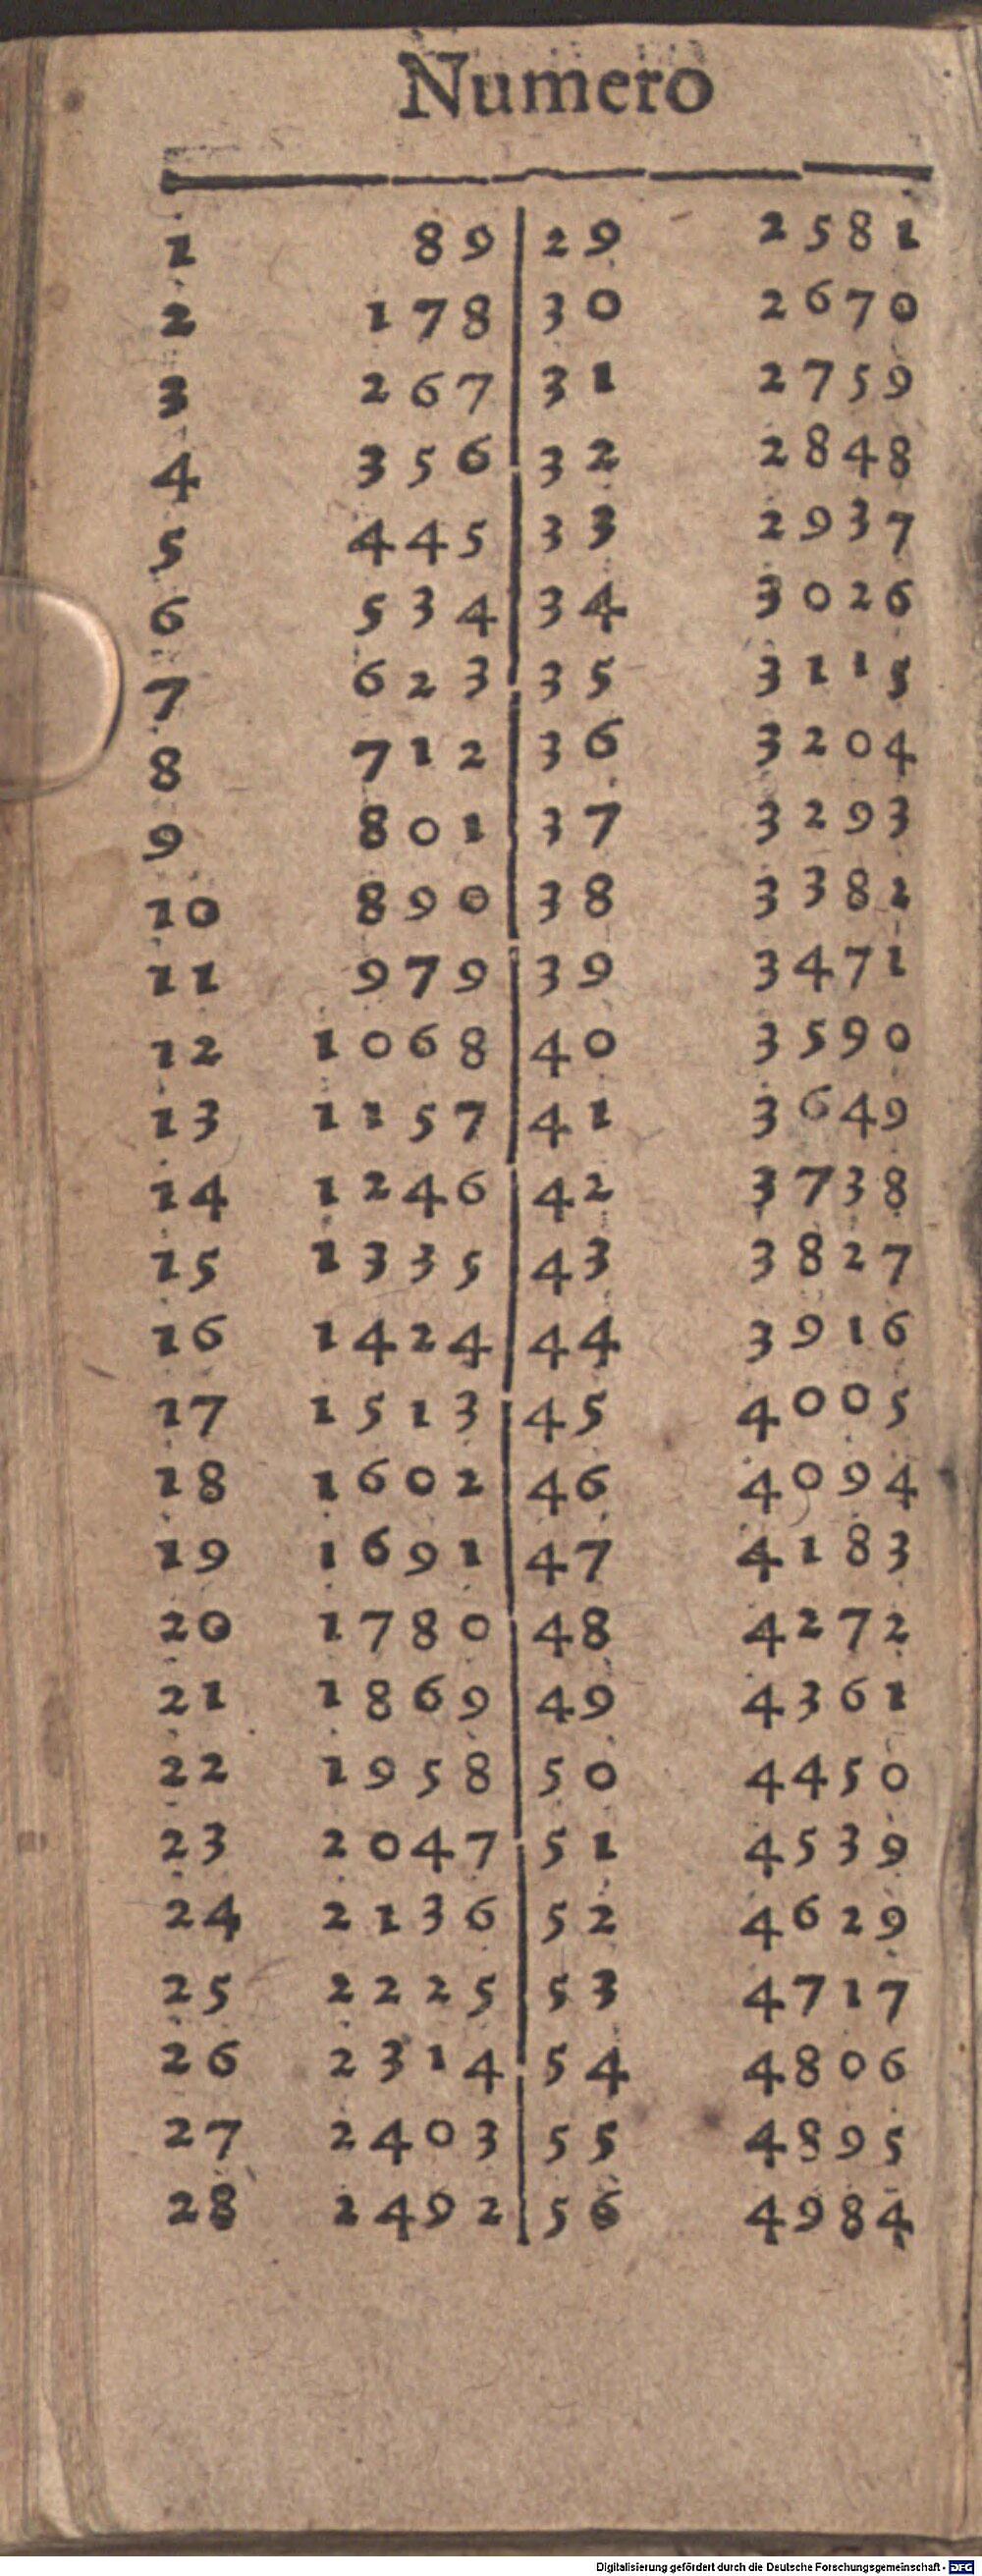 Numero
1 89 29 2581
2 178 30 2670
3 267 31 2759
4 356 32 2848
5 445 33 2937
6 534 34 3026
7 623 35 3115
8 712 36 3204
9 801 37 3293
10 890 38 3382
11 979 39 3471
12 1068 40 3590
13 1157 41 3649
14 1246 42 3738
15 1335 43 3827
16 1424 44 3916
17 1513 45 4005
18 1602 46 4094
19 1691 47 4183
20 1780 48 4272
21 1869 49 4361
22 1958 50 4450
23 2047 51 4539
24 2136 52 4629
25 2225 53 4717
26 2314 54 4806
27 2403 55 4895
28 2492 56 4984
Digitalisierung gefördert durch die Deutsche Forschungsgemeinschaft - DFG